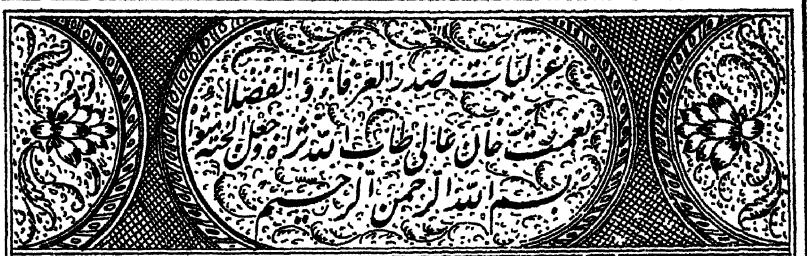 غزلیات صدر العرفاء والفضلا
نعمت خان عالی طاب الله ثراه وجعل الجنة مثواه
بسم الله الرحمن الرحیم